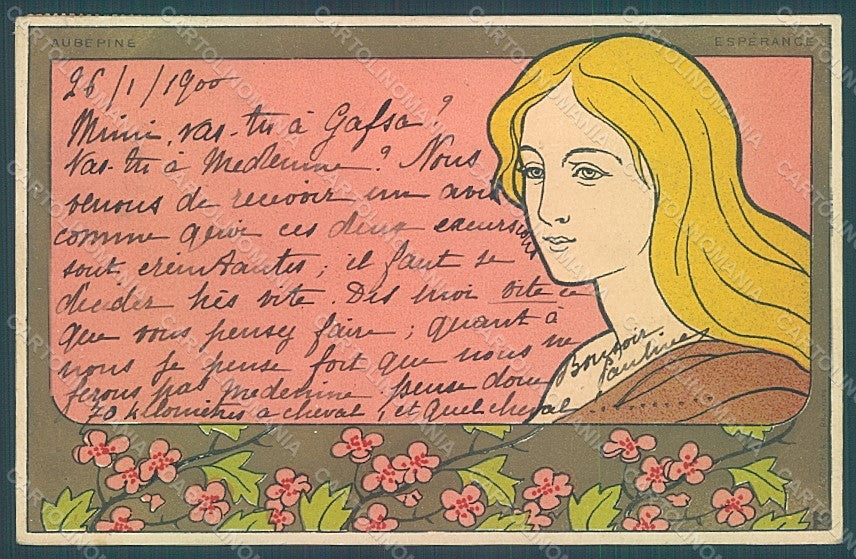 AUBÉPINE
ESPÉRANCE
26/1/1900
Mimi, vas-tu à Gafsa?
Vas-tu à Medenine? Nous
venons de recevoir un avis
comme quoi ces deux excursions
sont éreintantes; il faut se
décider très vite. Dis moi vite ce
que vous pensez faire; quant à
nous je pense fort que nous ne
ferons pas Medenine pense donc
70 kilomètres à cheval, et quel cheval........
Bonsoir.
Pauline
CARTOLINOMANIA